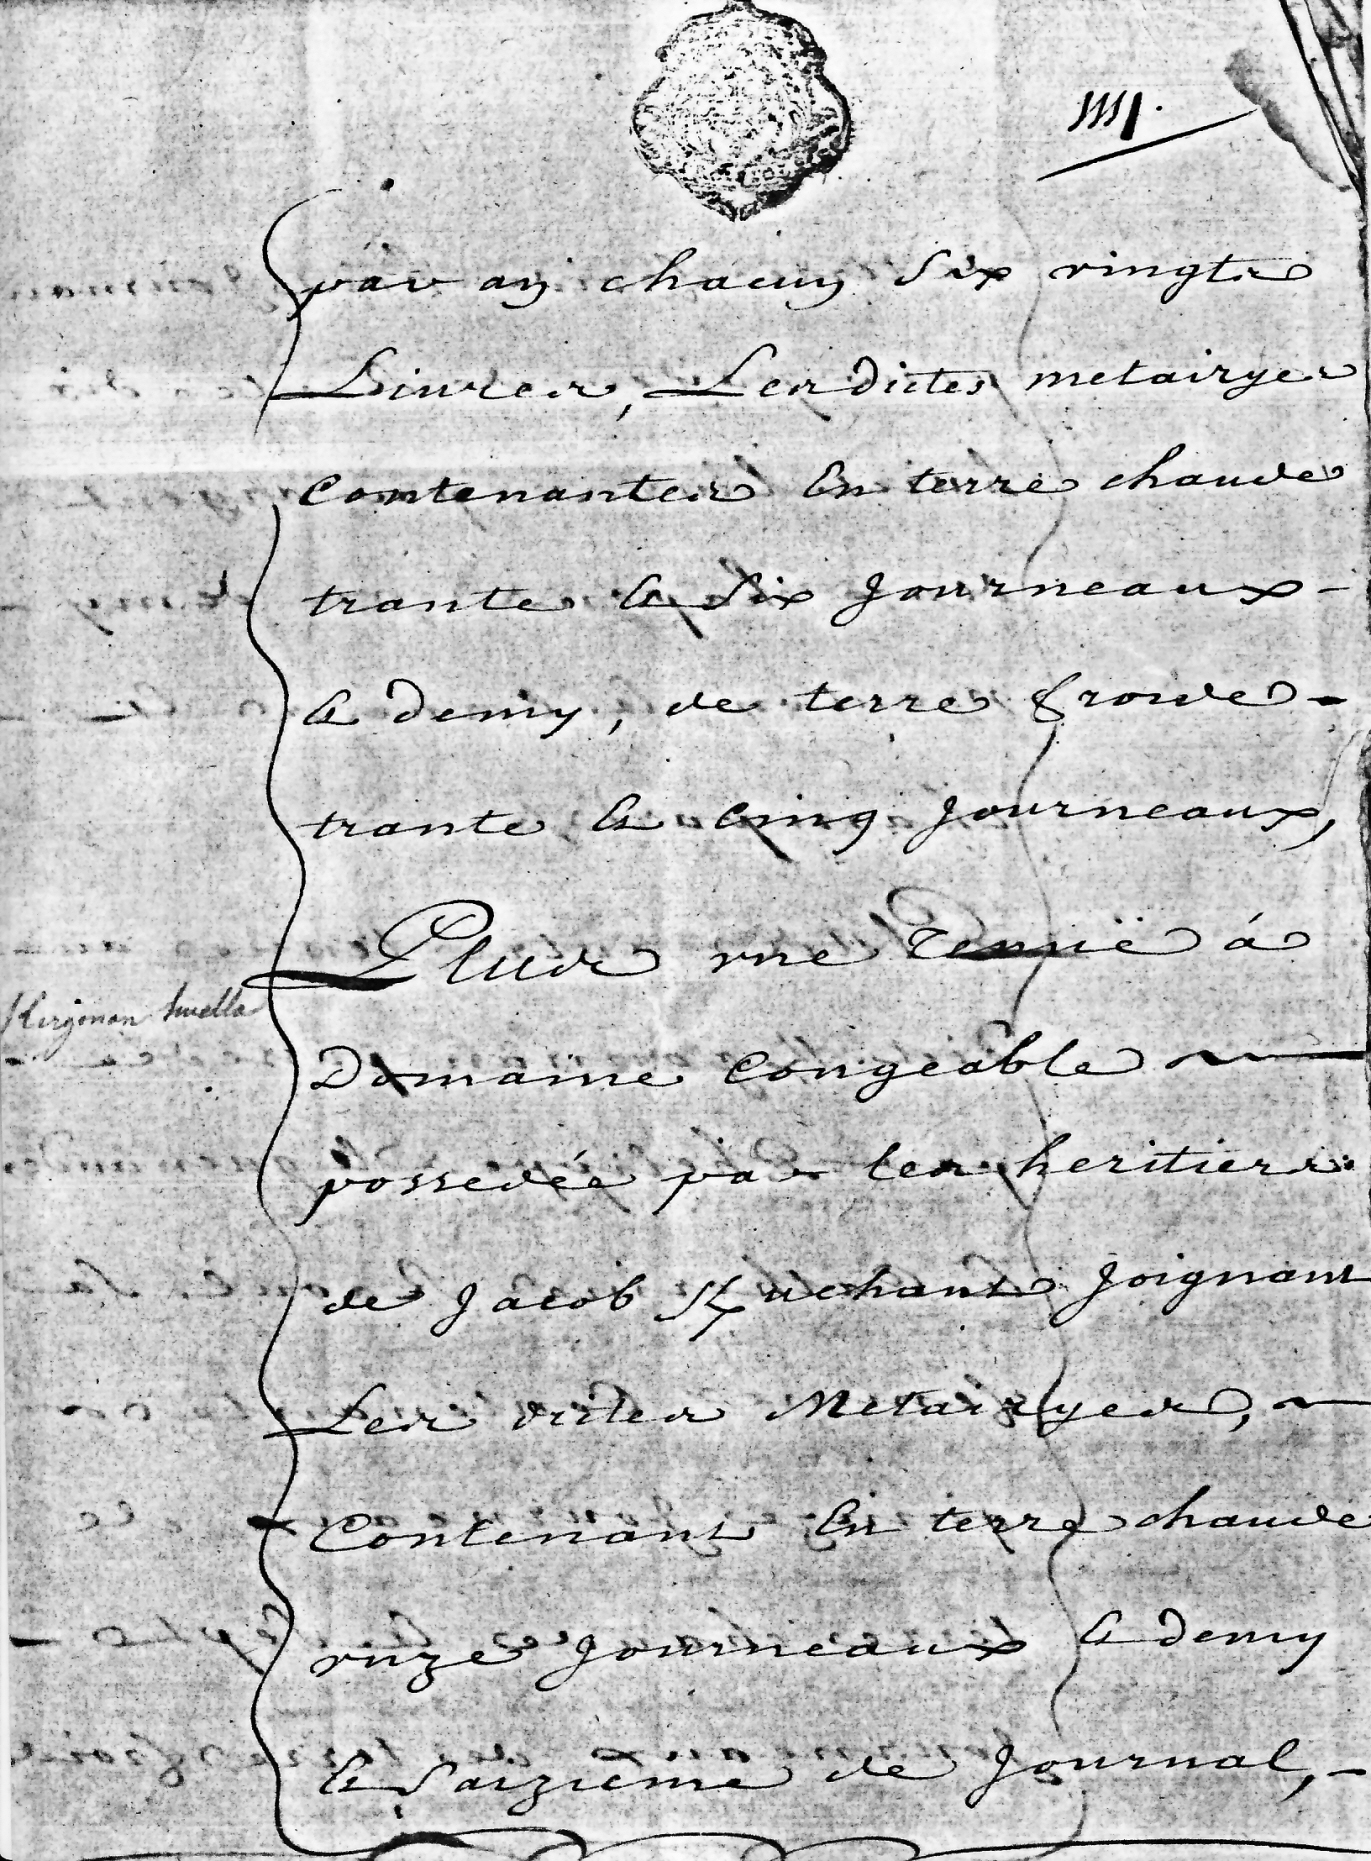 IIII.
par an chacun six vingts
Livres, Lesdictes metairyes
Contenantes En terre chaude
trante & six Journeaux -
& demy, de terre froide -
trante & cinq Journeaux,
Plus vne Tenuë á
Kergonan huella
Domaine Congeable
possedée par les heritiers
de Jacob Joignant
Les dites Metairyes,
Contenant En terre chaude
vnze Journeaux & demy
& saizieme de Journal, -